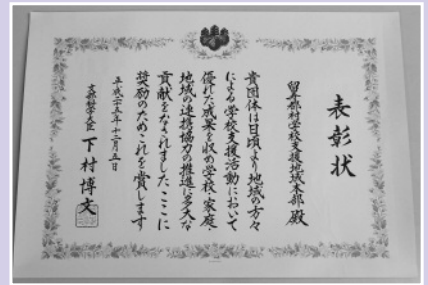 表彰状
留寿都村学校支援地域本部 殿
貴団体は日頃より地域の方々
による学校支援活動において
優れた成果を収め学校・家庭・
地域の連携協力の推進に多大な
貢献をなされました ここに
奨励のためこれを賞します
平成二十五年十二月五日
文部科学大臣 下村博文